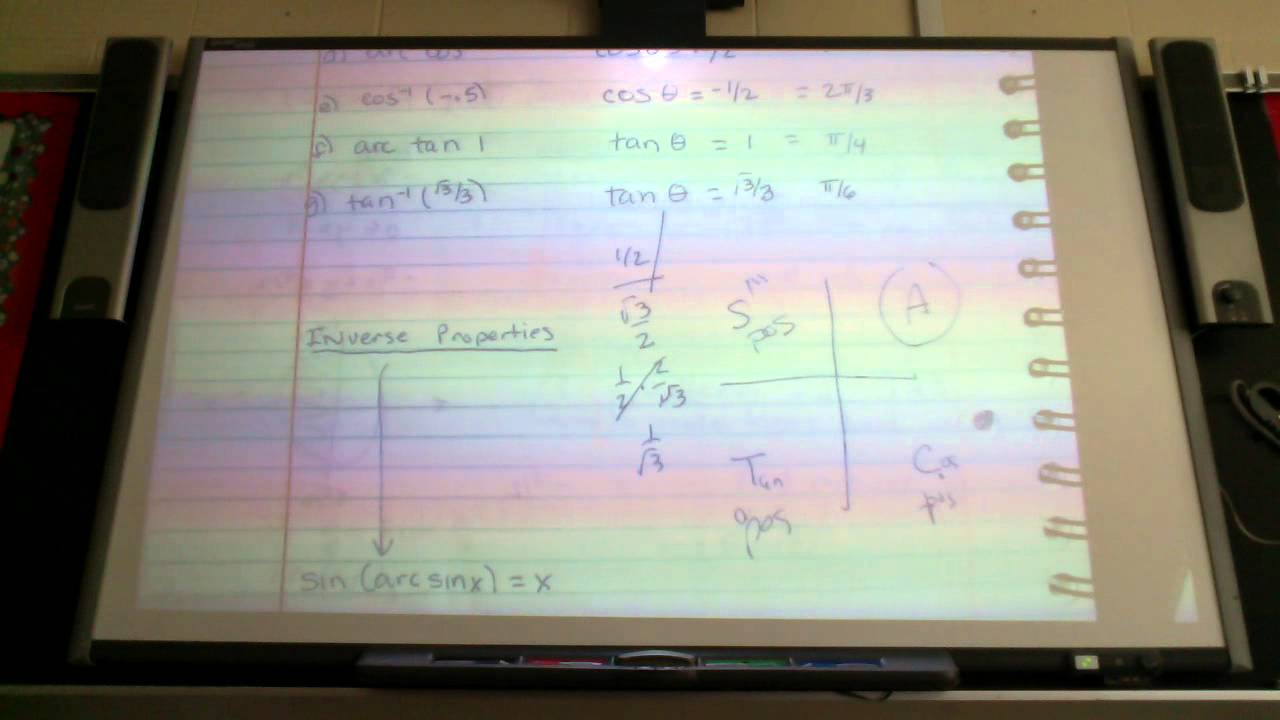 d) arc cos
e) cos⁻¹ (-.5) cos θ = -1/2 = 2π/3
f) arc tan 1 tan θ = 1 = π/4
g) tan⁻¹ (√3/3) tan θ = √3/3 π/6
1/2
√3/2
1/2 · 2/√3
1/√3
S pos
A
Tan pos
Cos pos
Inverse Properties
sin (arc sin x) = x